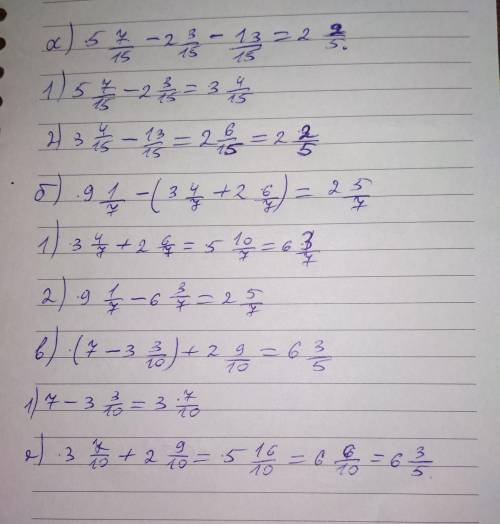 а) 5 7/15 - 2 3/15 - 13/15 = 2 2/5.
1) 5 7/15 - 2 3/15 = 3 4/15
2) 3 4/15 - 13/15 = 2 6/15 = 2 2/5
б) 9 1/7 - (3 4/7 + 2 6/7) = 2 5/7
1) 3 4/7 + 2 6/7 = 5 10/7 = 6 3/7
2) 9 1/7 - 6 3/7 = 2 5/7
в) (7 - 3 3/10) + 2 9/10 = 6 3/5
1) 7 - 3 3/10 = 3 7/10
2) 3 7/10 + 2 9/10 = 5 16/10 = 6 6/10 = 6 3/5.